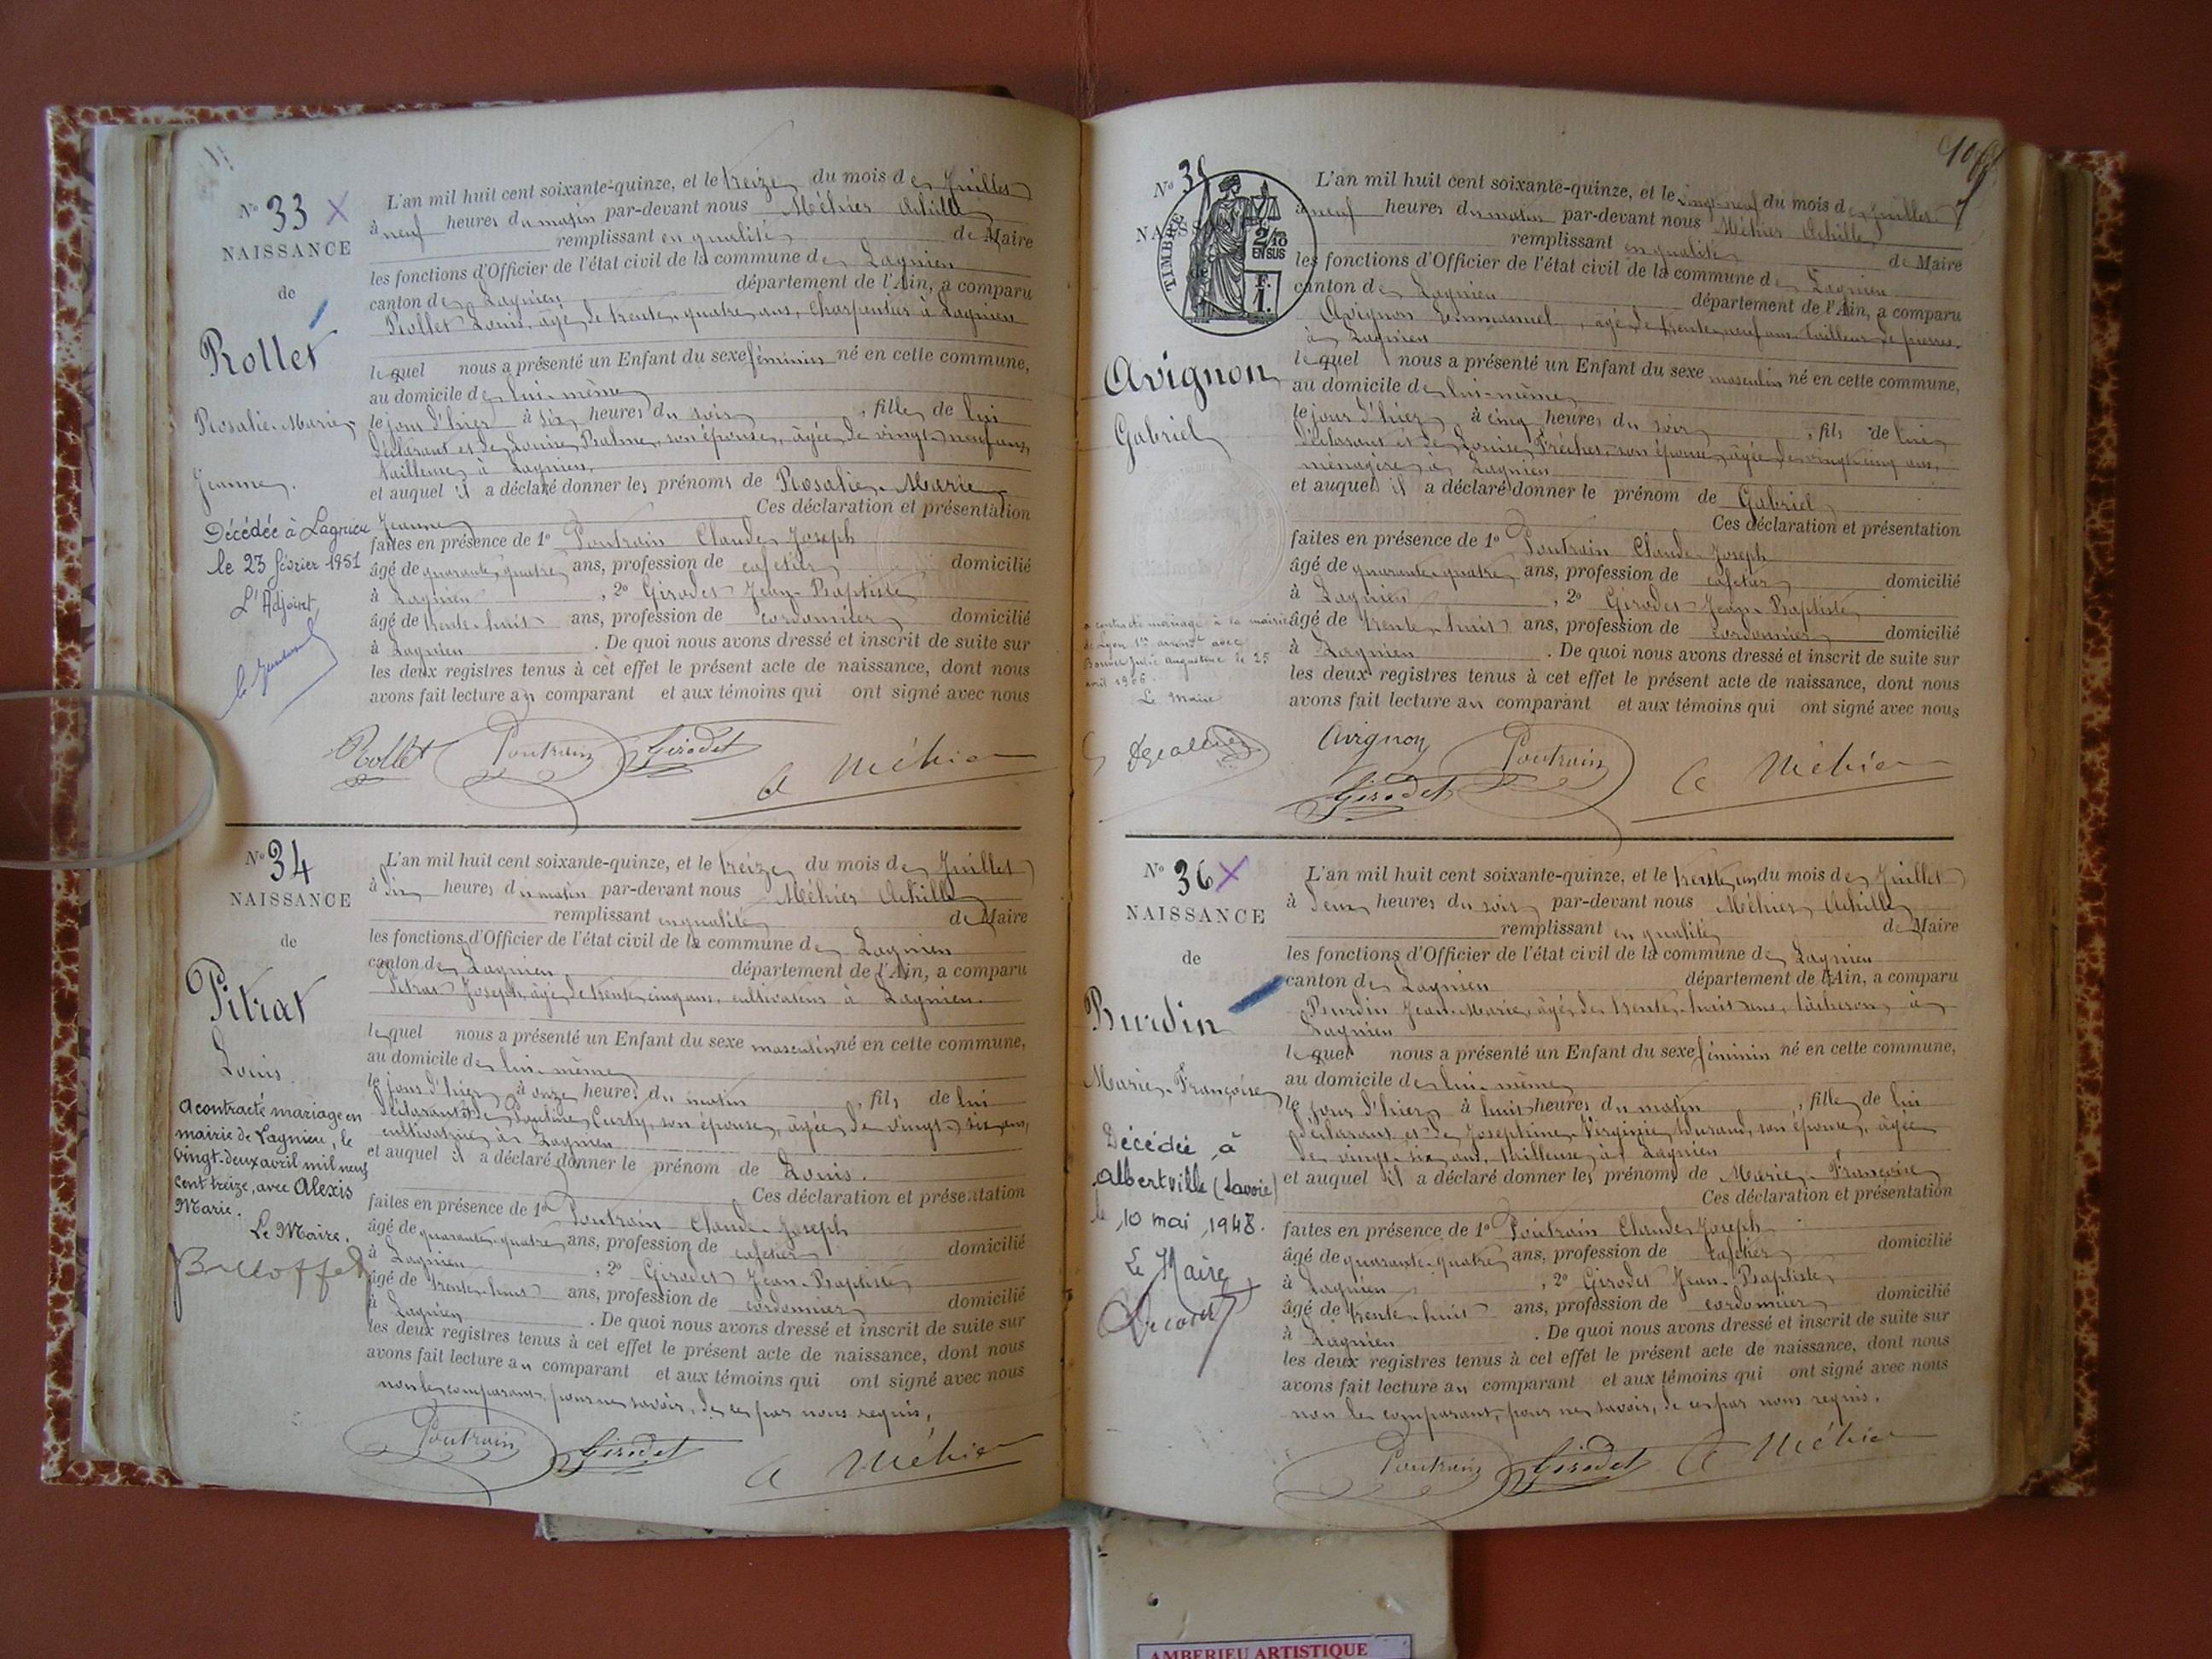 N° 33 X
NAISSANCE
de
Rollet
Rosalie-Marie
Jeanne.
Décédée à Lagnieu
le 23 février 1951
L'Adjoint
L'an mil huit cent soixante-quinze, et le treize du mois de Juillet
à neuf heures du matin par-devant nous Méhier Achille
remplissant en qualité de Maire
les fonctions d'Officier de l'état civil de la commune de Lagnieu
canton de Lagnieu département de l'Ain, a comparu
Rollet Louis, âgé de trente-quatre ans, charpentier à Lagnieu
lequel nous a présenté un Enfant du sexe féminin né en cette commune,
au domicile de lui-même
le jour d'hier à six heures du soir, fille de lui
déclarant et de Louise Balme, son épouse, âgée de vingt-neuf ans,
tailleuse à Lagnieu,
et auquel il a déclaré donner les prénoms de Rosalie-Marie
Jeanne Ces déclaration et présentation
faites en présence de 1° Poutrain Claude Joseph
âgé de quarante-quatre ans, profession de cafetier domicilié
à Lagnieu, 2° Girodet Jean-Baptiste
âgé de trente-huit ans, profession de cordonnier domicilié
à Lagnieu. De quoi nous avons dressé et inscrit de suite sur
les deux registres tenus à cet effet le présent acte de naissance, dont nous
avons fait lecture au comparant et aux témoins qui ont signé avec nous
Rollet Poutrain Girodet A Méhier
N° 34
NAISSANCE
de
Pitrat
Louis.
A contracté mariage en
mairie de Lagnieu, le
vingt-deux avril mil neuf
cent treize, avec Alexis
Marie.
Le Maire.
L'an mil huit cent soixante-quinze, et le treize du mois de Juillet
à dix heures du matin par-devant nous Méhier Achille
remplissant en qualité de Maire
les fonctions d'Officier de l'état civil de la commune de Lagnieu
canton de Lagnieu département de l'Ain, a comparu
Pitrat Joseph, âgé de trente-cinq ans, cultivateur à Lagnieu.
lequel nous a présenté un Enfant du sexe masculin né en cette commune,
au domicile de lui-même
le jour d'hier à onze heures du matin, fils de lui
déclarant et de Curty, son épouse, âgée de vingt-six ans,
cultivatrice à Lagnieu
et auquel il a déclaré donner le prénom de Louis.
Ces déclaration et présentation
faites en présence de 1° Poutrain Claude-Joseph
âgé de quarante-quatre ans, profession de cafetier domicilié
à Lagnieu, 2° Girodet Jean-Baptiste
âgé de trente-huit ans, profession de cordonnier domicilié
à Lagnieu. De quoi nous avons dressé et inscrit de suite sur
les deux registres tenus à cet effet le présent acte de naissance, dont nous
avons fait lecture au comparant et aux témoins qui ont signé avec nous
non le comparant, pour ne savoir, de ce par nous requis,
Poutrain Girodet A Méhier
N° 35
NAISS
TIMBRE
2/10
EN SUS
F.
1.
Avignon
Gabriel
a contracté mariage à la mairie
de Lyon 1er arrondt avec
Julie Augustine le 25
avril 1906.
Le Maire
L'an mil huit cent soixante-quinze, et le vingt-neuf du mois de Juillet
à neuf heures du matin par-devant nous Méhier Achille
remplissant en qualité de Maire
les fonctions d'Officier de l'état civil de la commune de Lagnieu
canton de Lagnieu département de l'Ain, a comparu
Avignon Emmanuel, âgé de trente-neuf ans tailleur de pierres
à Lagnieu
lequel nous a présenté un Enfant du sexe masculin né en cette commune,
au domicile de lui-même
le jour d'hier à cinq heures du soir, fils de lui
déclarant et de Louise Fréchet, son épouse, âgée de vingt-cinq ans,
ménagère à Lagnieu
et auquel il a déclaré donner le prénom de Gabriel
Ces déclaration et présentation
faites en présence de 1° Poutrain Claude-Joseph
âgé de quarante-quatre ans, profession de cafetier domicilié
à Lagnieu, 2° Girodet Jean-Baptiste
âgé de trente-huit ans, profession de cordonnier domicilié
à Lagnieu. De quoi nous avons dressé et inscrit de suite sur
les deux registres tenus à cet effet le présent acte de naissance, dont nous
avons fait lecture au comparant et aux témoins qui ont signé avec nous
Avignon Poutrain
Girodet A Méhier
N° 36 X
NAISSANCE
de
Burdin
Marie-Françoise
Décédée à
Albertville (Savoie)
le 10 mai 1948.
Le Maire
L'an mil huit cent soixante-quinze, et le trente-un du mois de Juillet
à deux heures du soir par-devant nous Méhier Achille
remplissant en qualité de Maire
les fonctions d'Officier de l'état civil de la commune de Lagnieu
canton de Lagnieu département de l'Ain, a comparu
Burdin Jean-Marie, âgé de trente-huit ans, bûcheron, à
Lagnieu
lequel nous a présenté un Enfant du sexe féminin né en cette commune,
au domicile de lui-même
le jour d'hier à huit heures du matin, fille de lui
déclarant et de Josephine Virginie Durand, son épouse, âgée
de vingt-six ans, tailleuse à Lagnieu
et auquel il a déclaré donner les prénoms de Marie-Françoise
Ces déclaration et présentation
faites en présence de 1° Poutrain Claude Joseph
âgé de quarante-quatre ans, profession de cafetier domicilié
à Lagnieu, 2° Girodet Jean-Baptiste
âgé de trente-huit ans, profession de cordonnier domicilié
à Lagnieu. De quoi nous avons dressé et inscrit de suite sur
les deux registres tenus à cet effet le présent acte de naissance, dont nous
avons fait lecture au comparant et aux témoins qui ont signé avec nous
non le comparant, pour ne savoir, de ce par nous requis.
Poutrain Girodet A Méhier
AMBERIEU ARTISTIQUE